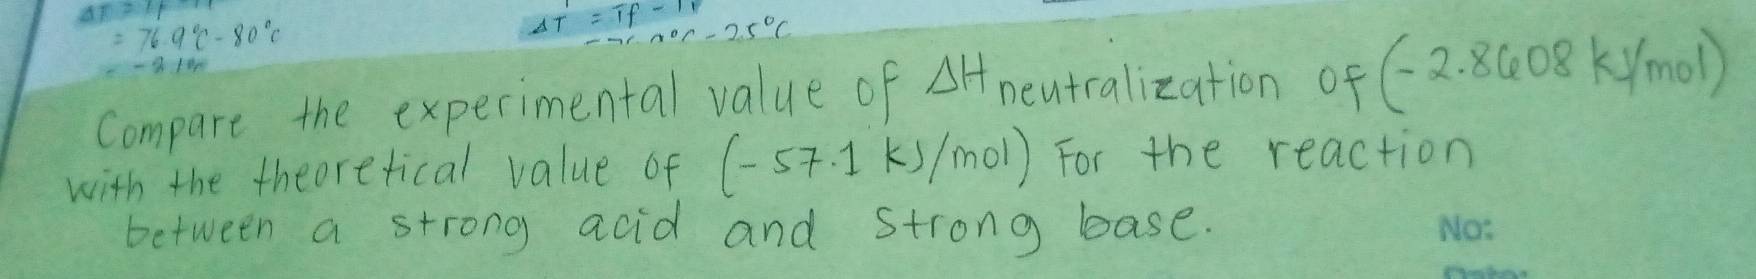 ΔT = Tf -
= 76.9°C - 80°C
ΔT = Tf - Ti
- 25°C
Compare the experimental value of ΔH neutralization of (-2.8608 kJ/mol)
with the theoretical value of (-57.1 kJ/mol) For the reaction
between a strong acid and strong base.
No:
Date: